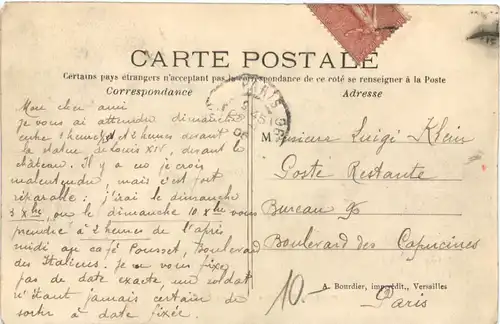 CARTE POSTALE
Certains pays étrangers n'acceptant pas la correspondance de ce coté se renseigner à la Poste
Correspondance
Adresse
Mon cher ami
je vous ai attendu dimanche
entre 1 heure et 2 heures devant
la statue de Louis XIV, devant le
château. Il y a eu je crois
malentendu, mais c'est fort
réparable: j'irai le dimanche
3 Xbre, ou le dimanche 10 Xbre vous
prendre à 2 heures de l'après
midi au café Pousset, Boulevard
des Italiens. Je ne vous fixe
pas de date exacte un soldat
n'étant jamais certain de
sortir à date fixée.
M onsieur Luigi Klein
Poste Restante
Bureau 96
Boulevard des Capucines
Paris
10.-
A. Bourdier, imp.-édit., Versailles
PARIS